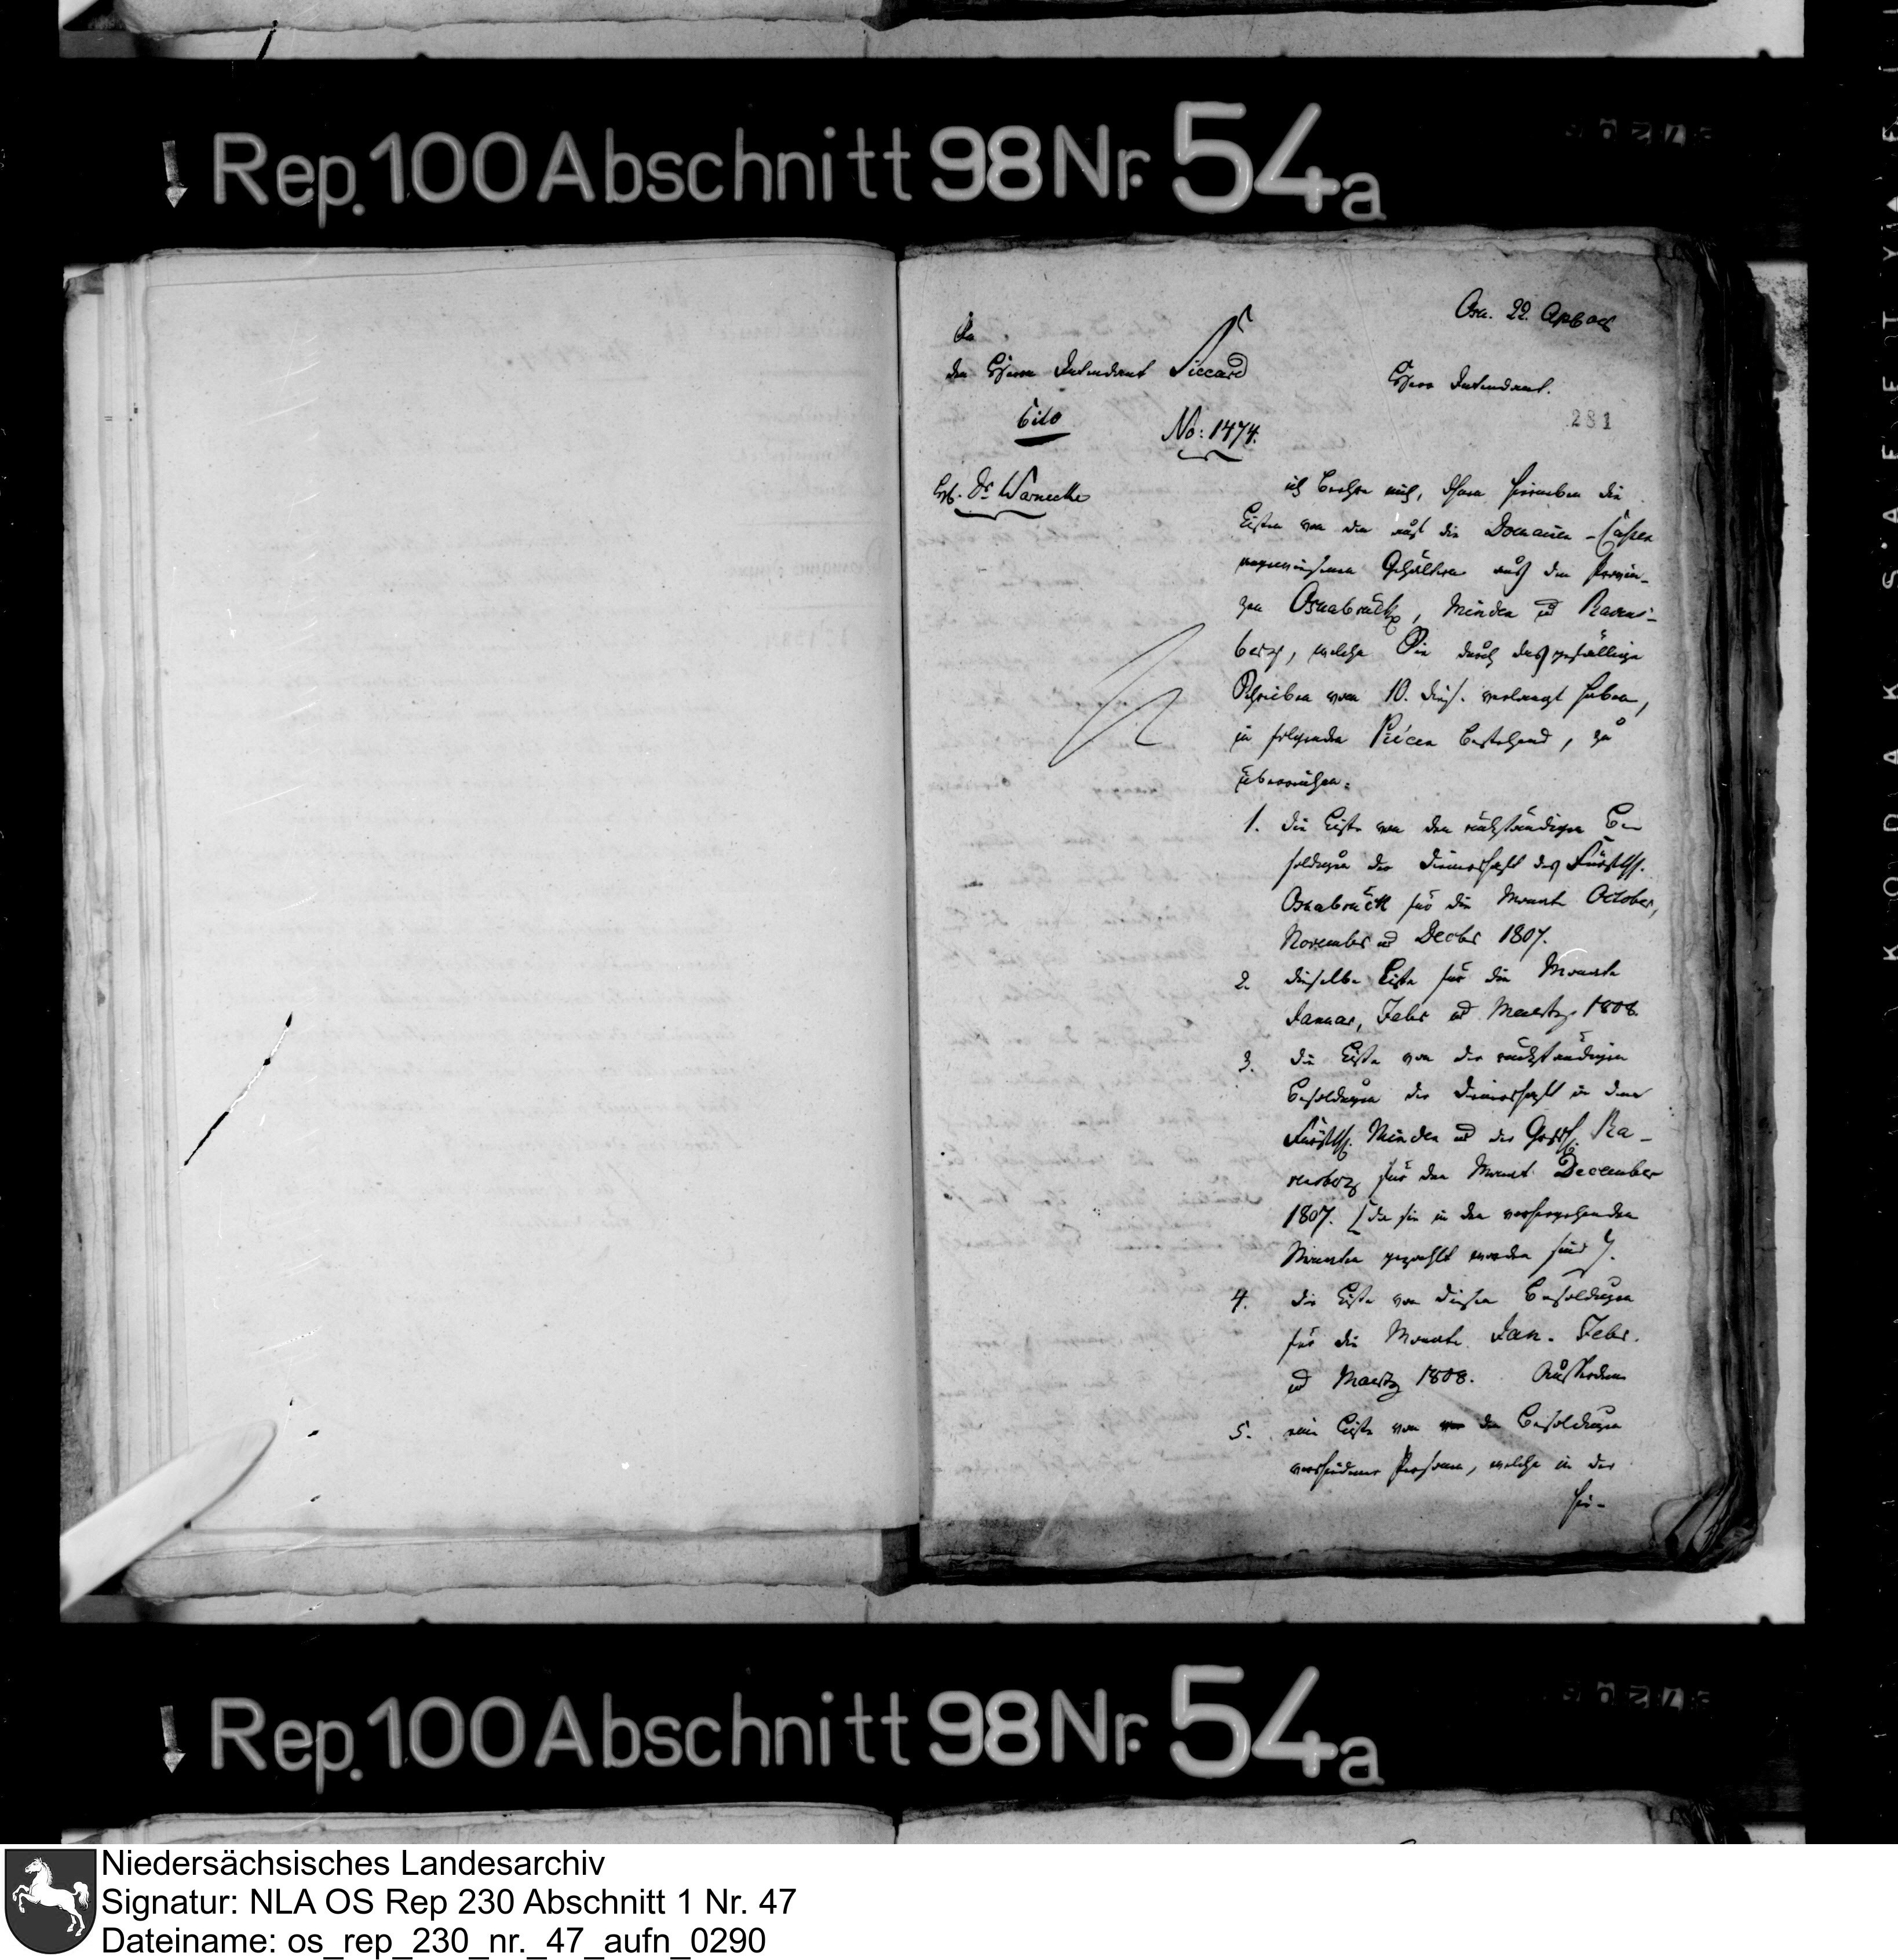 Rep. 100 Abschnitt 98 Nr. 54a
Osn. 22. Apr 808
An
den Herrn Intendant Siccard
Herr Intendant.
281
Cito
No: 1474.
Dr Warnecke
ich beehre mich, Ihnen hierneben die
Listen von den auf die Domänen-Cassen
angewiesenen Gehältern aus den Provin-
zen Osnabrück, Minden und Ravens-
berg, welche Sie durch das gefällige
Schreiben vom 10. dies. verlangt haben,
in folgenden Piécen bestehend, zu
überreichen:
1. die Liste von den rückständigen Be-
soldungen der Dienerschaft des Fürstth.
Osnabrück für die Monate October,
November und Decbr 1807.
2. dieselbe Liste für die Monate
Januar, Febr und Maertz 1808.
3. die Liste von den rückständigen
Besoldungen der Dienerschaft in dem
Fürstth. Minden und der Grfsch. Ra-
vensberg für den Monat December
1807. [da sie in den vorhergehenden
Monaten gezahlt worden sind].
4. die Liste von diesen Besoldungen
für die Monate Jan. Febr.
und Maertz 1808. Außerdem
5. eine Liste von den Besoldungen
verschiedener Personen, welche in der
hie-
Rep. 100 Abschnitt 98 Nr. 54a
Niedersächsisches Landesarchiv
Signatur: NLA OS Rep 230 Abschnitt 1 Nr. 47
Dateiname: os_rep_230_nr._47_aufn_0290